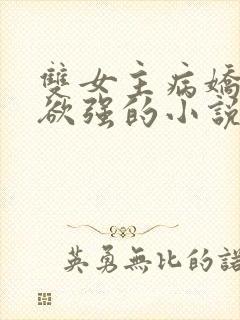 雙女主病嬌
欲强的小說
英勇無比的諾